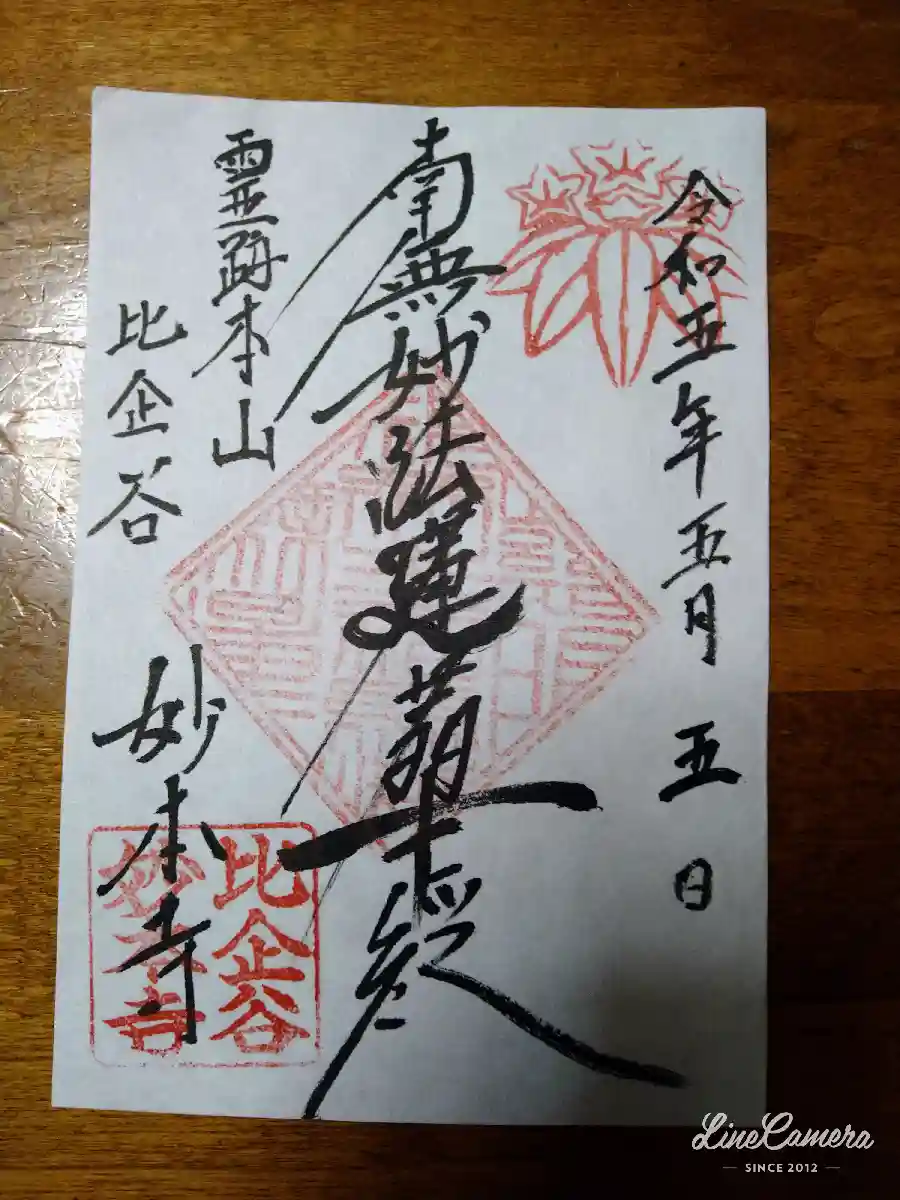 令和五年五月五日
南無妙法蓮華経
霊跡本山
比企谷
妙本寺
比企谷
妙本寺
LineCamera
SINCE 2012